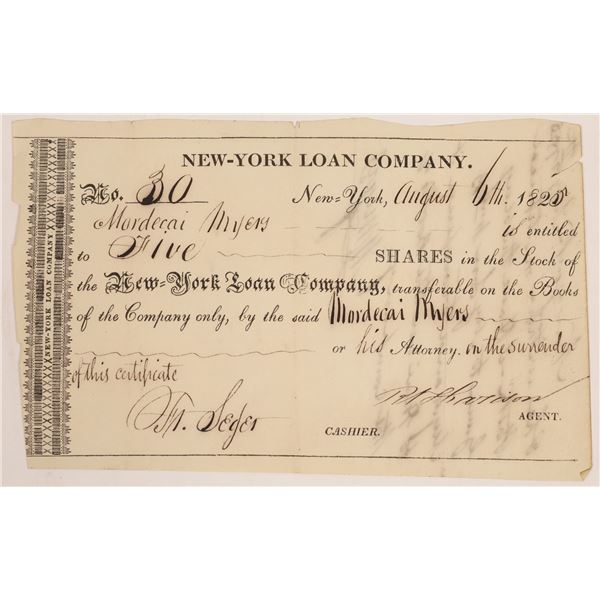 NEW-YORK LOAN COMPANY.
No. 30 New-York, August 6th. 1825
Mordecai Myers is entitled
to Five SHARES in the Stock of
the New-York Loan Company, transferable on the Books
of the Company only, by the said Mordecai Myers
or his Attorney. on the surrender
of this certificate
Seger
CASHIER.
AGENT.
NEW-YORK LOAN COMPANY